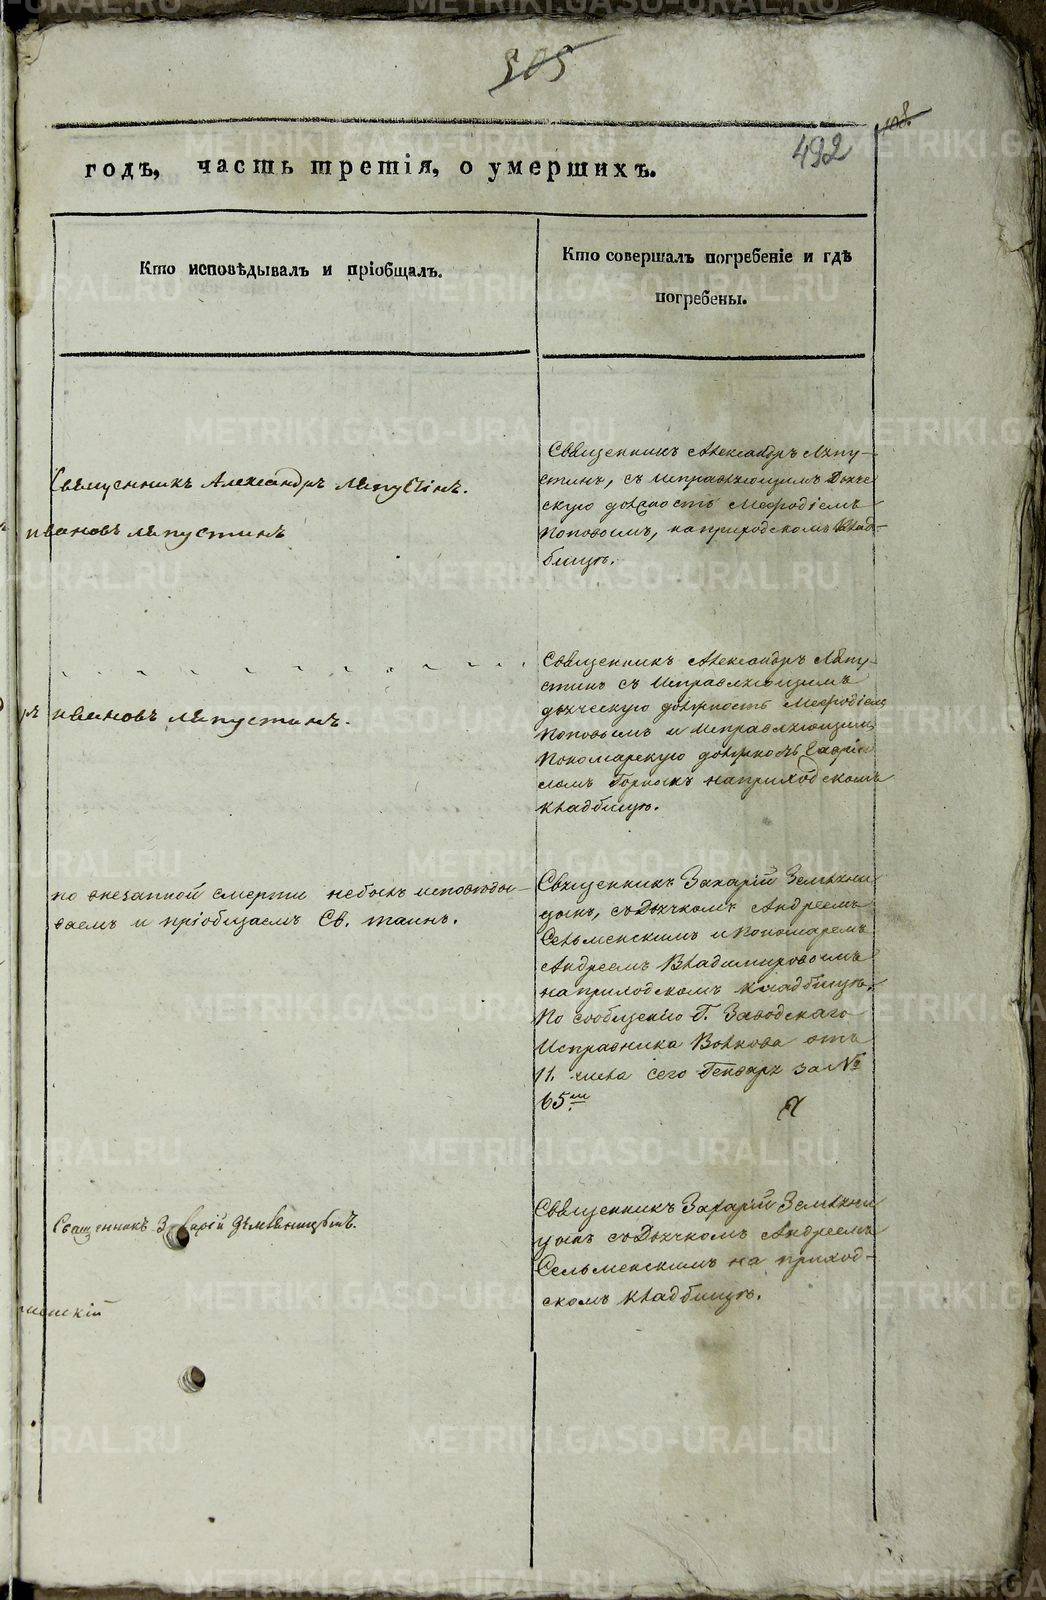 505
492
годъ, часть третія, о умершихъ.
Кто исповѣдывалъ и пріобщалъ.
Кто совершалъ погребеніе и гдѣ
погребены.
Священникъ Александръ Ляпустинъ.
ивановъ ляпустинъ
Священникъ Александръ Ляпу-
стинъ, съ исправляющимъ Дьяче-
скую должность Мефодіемъ
Поповымъ, на приходскомъ Клад-
бищѣ.
ивановъ ляпустинъ.
Священникъ Александръ Ляпу-
стинъ съ исправляющимъ
дьяческую должность Мефодіемъ
Поповымъ и исправляющимъ
Пономарскую должность Гаврі
иломъ на приходскомъ
кладбищѣ.
по внезапной смерти небылъ исповѣды-
ваемъ и пріобщаемъ Св. таинъ.
Священникъ Захарій
съ Дьячкомъ Андреемъ
Сельменскимъ и Пономаремъ
Андреемъ Владимировымъ
на приходскомъ кладбищѣ.
По сообщенію Г. Заводскаго
Исправника Волкова отъ
11. числа сего Генваря за №
65
Священникъ Захарій
Священникъ Захарій
съ Дьячкомъ Андреемъ
Сельменскимъ на приход-
скомъ кладбищѣ.
METRIKI.GASO-URAL.RU